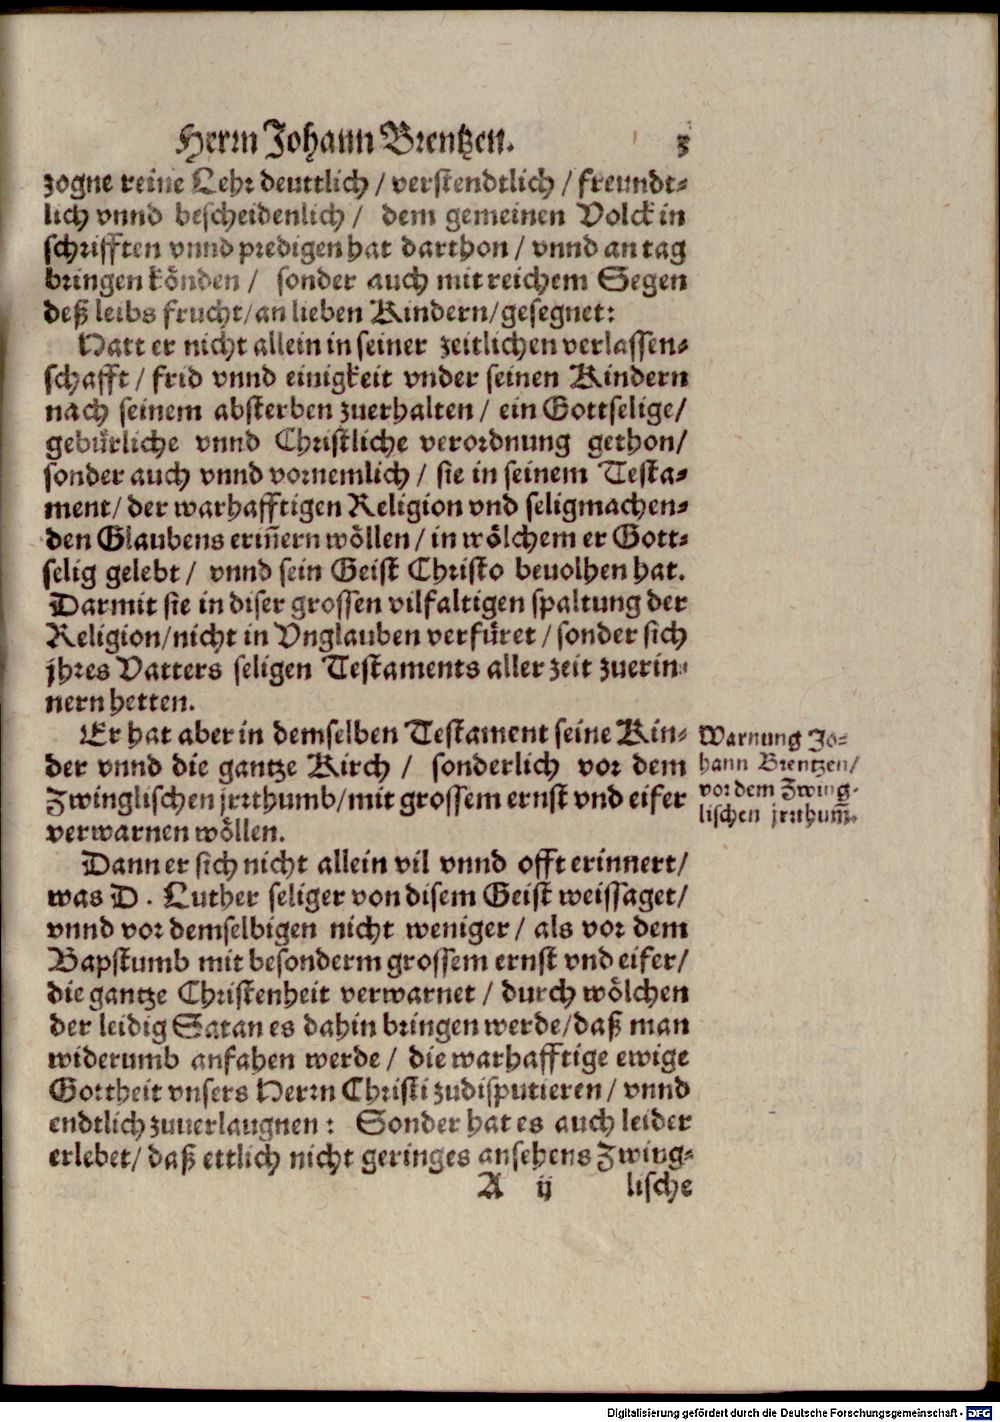 Herrn Johann Brentzen. 3
zogne reine Lehr deuttlich / verstendtlich / freundt-
lich vnnd bescheidenlich / dem gemeinen Volck in
schrifften vnnd predigen hat darthon / vnnd an tag
bringen könden / sonder auch mit reichem Segen
deß leibs frucht / an lieben Kindern / gesegnet:
Hatt er nicht allein in seiner zeitlichen verlassen-
schafft / frid vnnd einigkeit vnder seinen Kindern
nach seinem absterben zuerhalten / ein Gottselige /
gebürliche vnnd Christliche verordnung gethon /
sonder auch vnnd vornemlich / sie in seinem Testa-
ment / der warhafftigen Religion vnd seligmachen-
den Glaubens erin̄ern wöllen / in wölchem er Gott-
selig gelebt / vnnd sein Geist Christo beuolhen hat.
Darmit sie in diser grossen vilfaltigen spaltung der
Religion / nicht in Vnglauben verfüret / sonder sich
jhres Vatters seligen Testaments aller zeit zuerin-
nern hetten.
Er hat aber in demselben Testament seine Kin-
der vnnd die gantze Kirch / sonderlich vor dem
Zwinglischen jrrthumb / mit grossem ernst vnd eifer
verwarnen wöllen.
Warnung Jo-
hann Brentzen /
vor dem Zwing-
lischen jrrthum̄.
Dann er sich nicht allein vil vnnd offt erinnert /
was D. Luther seliger von disem Geist weissaget /
vnnd vor demselbigen nicht weniger / als vor dem
Bapstumb mit besonderm grossem ernst vnd eifer /
die gantze Christenheit verwarnet / durch wölchen
der leidig Satan es dahin bringen werde / daß man
widerumb anfahen werde / die warhafftige ewige
Gottheit vnsers Herrn Christi zudisputieren / vnnd
endtlich zuuerlaugnen: Sonder hat es auch leider
erlebet / daß ettlich nicht geringes ansehens Zwing-
A ij lische
Digitalisierung gefördert durch die Deutsche Forschungsgemeinschaft - DFG